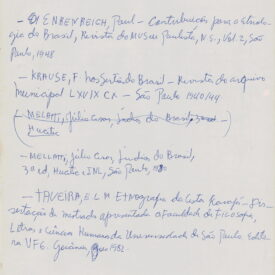 - EHRENREICH, Paul - Contribuições para a Etnologia
do Brasil, Revista do Museu Paulista, N.S., Vol. 2, São
Paulo, 1948
- KRAUSE, F. nos Sertões do Brasil - Revista do arquivo
municipal LXVI CX - São Paulo 1940/44
(MELATTI, Júlio Cezar, Índios do Brasil
Hucitec)
- MELATTI, Júlio Cezar, Índios do Brasil,
3a ed, Hucitec e INL, São Paulo, 1980
- TAVEIRA, E. L. M Etnografia da Cesta Karajá - Dis-
sertação de mestrado apresentada a Faculdade de Filosofia,
Letras e Ciências Humanas da Universidade de São Paulo. Edito-
ra UFG. Goiânia, 1982.